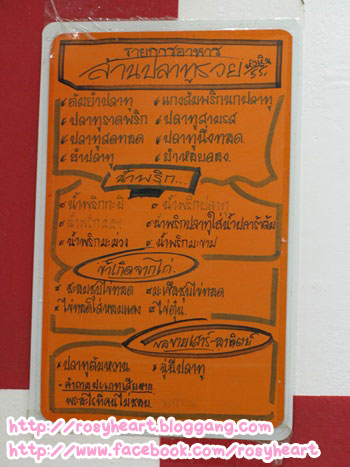 รายการอาหาร
ล้านปลาทูรวย หัวหิน
ต้มยำปลาทู แกงส้มพริกนกปลาทู
ปลาทูราดพริก ปลาทูสามรส
ปลาทูสดทอด ปลาทูนึ่งทอด
ยำปลาทู
น้ำพริก...
น้ำพริกกะปิ น้ำพริกปลาทู
น้ำพริก น้ำพริกปลาทูใส่น้ำปลาร้าต้ม
น้ำพริกมะม่วง น้ำพริกมะขาม
ข้าเกิดจากไก่
ชะอมชุบไข่ทอด มะเขือชุบไข่ทอด
ไข่ทอดใส่หอมแดง ไข่ตุ๋น
ขายเสาร์-อาทิตย์
ปลาทูต้มหวาน ฉู่ฉี่ปลาทู
http://rosyheart.bloggang.com
http://www.facebook.com/rosyheart